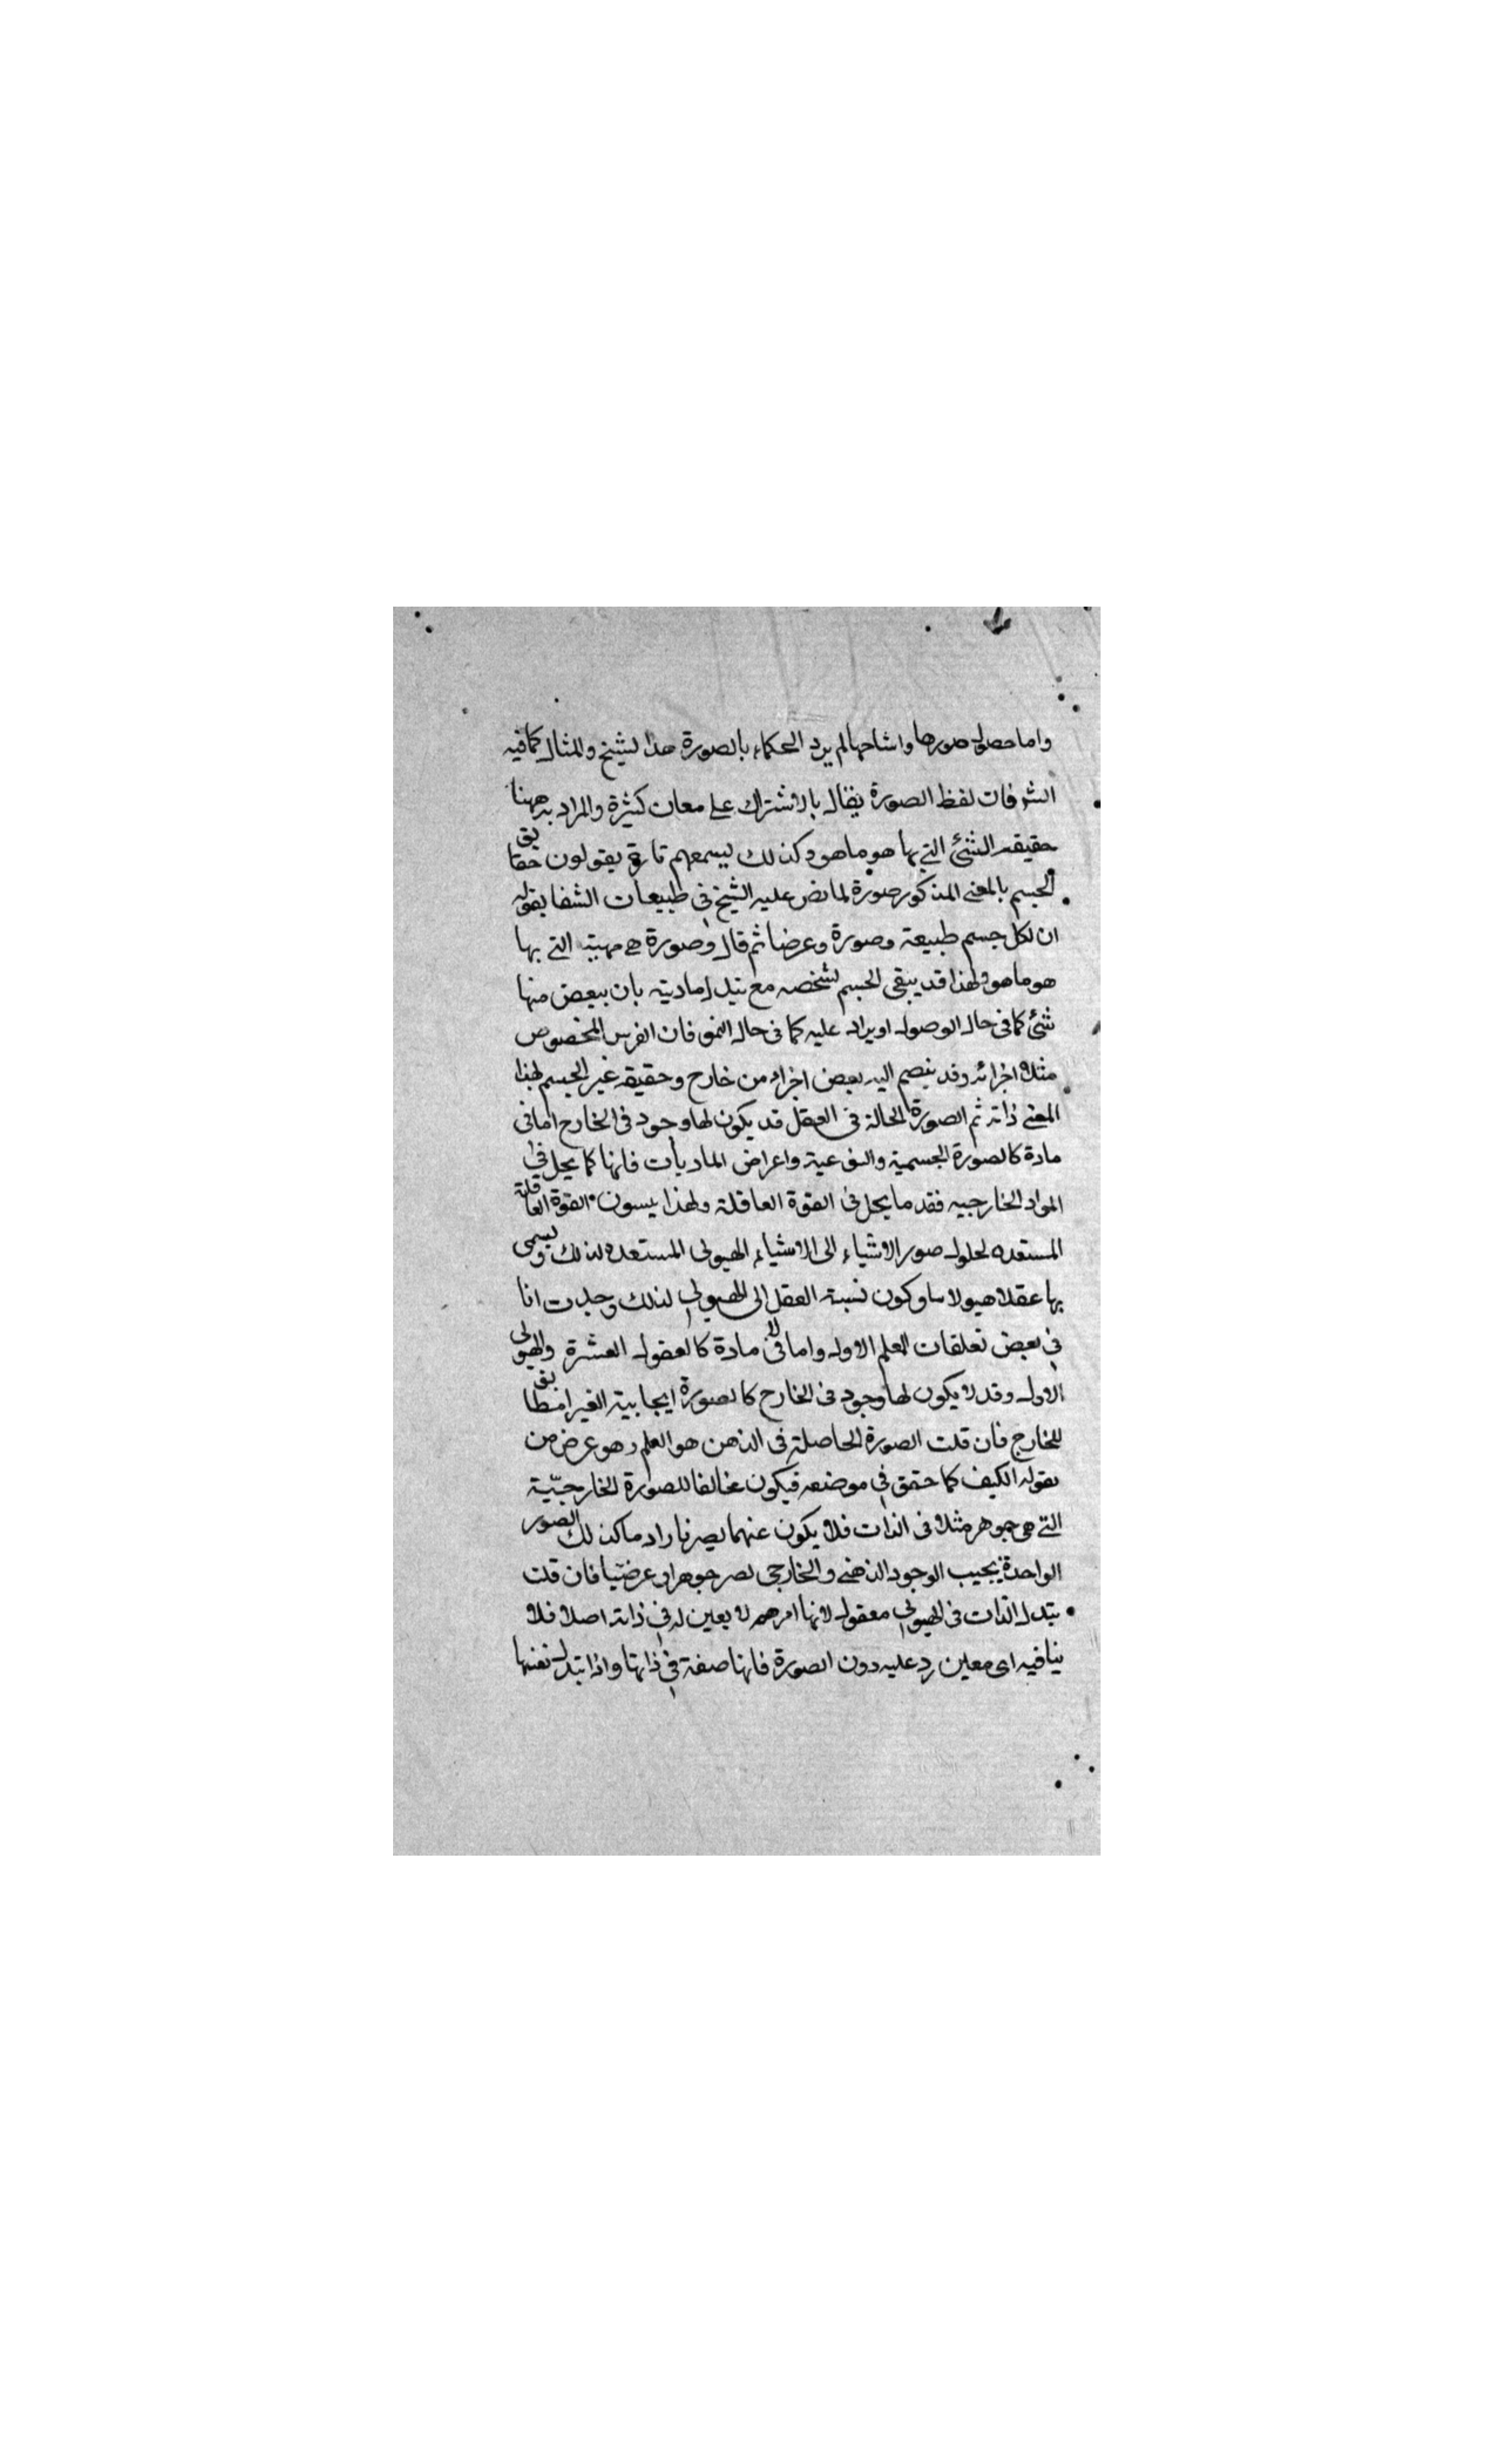 واما حصول صورها واشباحها لم يرد الحكماء بالصورة هذا الشيخ والمثال كما فيه
لفظ الصورة يقال بالاشتراك على معان كثيرة والمراد به ههنا
حقيقة الشئ التي بها هو ما هو وكذلك يسمعهم تارة يقولون حقايق
الجسم بالمعنى المذكور صورة لما نص عليه الشيخ في طبيعات الشفا بقوله
ان لكل جسم طبيعة وصورة وعرضا ثم قال وصورة هي مهيته التي بها
هو ما هو ولهذا قد يبقى الجسم لشخصه مع تبدل مادية بان ببعض منها
شئ كما في حال الوصول او يراد عليه كما في حال النمو فان الفرس المخصوص
مثلا اجزائه وقد ينضم اليه بعض اجزاء من خارج وحقيقة غير الجسم لهذا
المعنى ذاته ثم الصورة الحالة في العقل قد يكون لها وجود في الخارج اما في
مادة كالصورة الجسمية والنوعية واعراض الماديات فانها كما يحل في
المواد الخارجيه فقد ما يحل في القوة العاقلة ولهذا يسون القوة العاقلة
المستعده لحلول صور الاشياء الى الاشياء الهيولى المستعده لذلك ويسمى
بها عقلا هيولا وكون نسبة العقل الى الهيولي لذلك وجدت انا
في بعض تعلقات المعلم الاول واما في لا مادة كالعقول العشرة والهيولى
الاول وقد لا يكون لها وجود في الخارج كالصورة ايجابية الغير امطابق
للخارج فان قلت الصورة الحاصلة في الذهن هو العلم وهو عرض من
بقوله الكيف كما حقق في موضعه فيكون مخالفا للصورة الخارجيّة
التي هي جوهر مثلا في الذات فلا يكون عنهما كذلك الصور
الواحدة بحيب الوجود الذهني والخارجي جوهرا عرضيّا فان قلت
يتبدل الذات في الهيولي معقول لانها امر لا يعين له في ذاته اصلا فلا
ينافيه اى معين رد عليه دون الصورة فانها صفة في ذاتها واذا تبدل نفسها